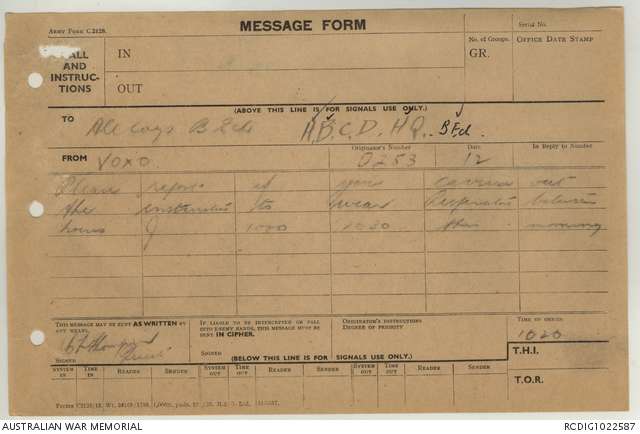 ARMY FORM C.2128.
MESSAGE FORM
Serial No.
CALL AND INSTRUCTIONS
IN
OUT
No. of Groups.
GR.
OFFICE DATE STAMP
(ABOVE THIS LINE IS FOR SIGNALS USE ONLY.)
TO
All coys B Ech
A, B, C, D, HQ, B Ech.
FROM
VOXO
Originator's Number
0253
Date
12
In Reply to Number
Please report if you carried out
the instruction to wear Respirators between
hours of 1000 1030 this morning
THIS MESSAGE MAY BE SENT AS WRITTEN BY ANY MEANS.
SIGNED
IF LIABLE TO BE INTERCEPTED OR FALL INTO ENEMY HANDS, THIS MESSAGE MUST BE SENT IN CIPHER.
SIGNED
ORIGINATOR'S INSTRUCTIONS
DEGREE OF PRIORITY
TIME OF ORIGIN
1020
T.H.I.
T.O.R.
(BELOW THIS LINE IS FOR SIGNALS USE ONLY.)
SYSTEM IN
TIME IN
READER
SENDER
SYSTEM OUT
TIME OUT
READER
SENDER
SYSTEM OUT
TIME OUT
READER
SENDER
AUSTRALIAN WAR MEMORIAL
RCDIG1022587